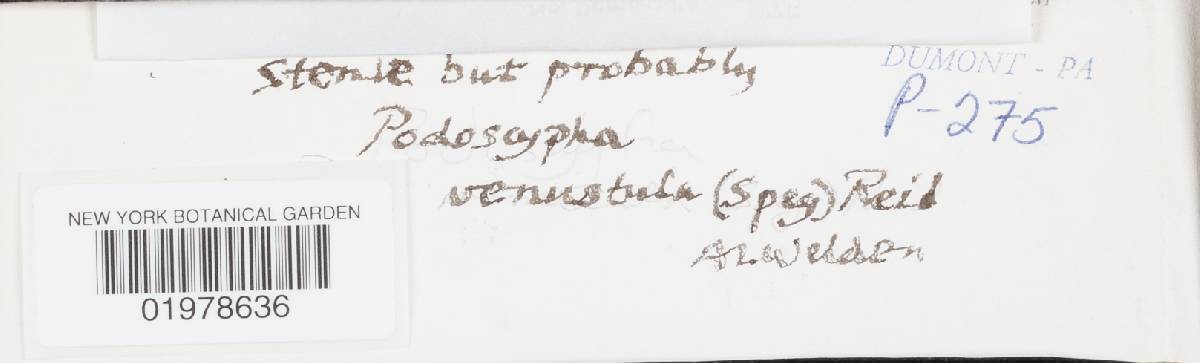 Sterile but probably
Podoscypha
venustula (Speg) Reid
AL Welden
DUMONT - PA
P-275
NEW YORK BOTANICAL GARDEN
01978636